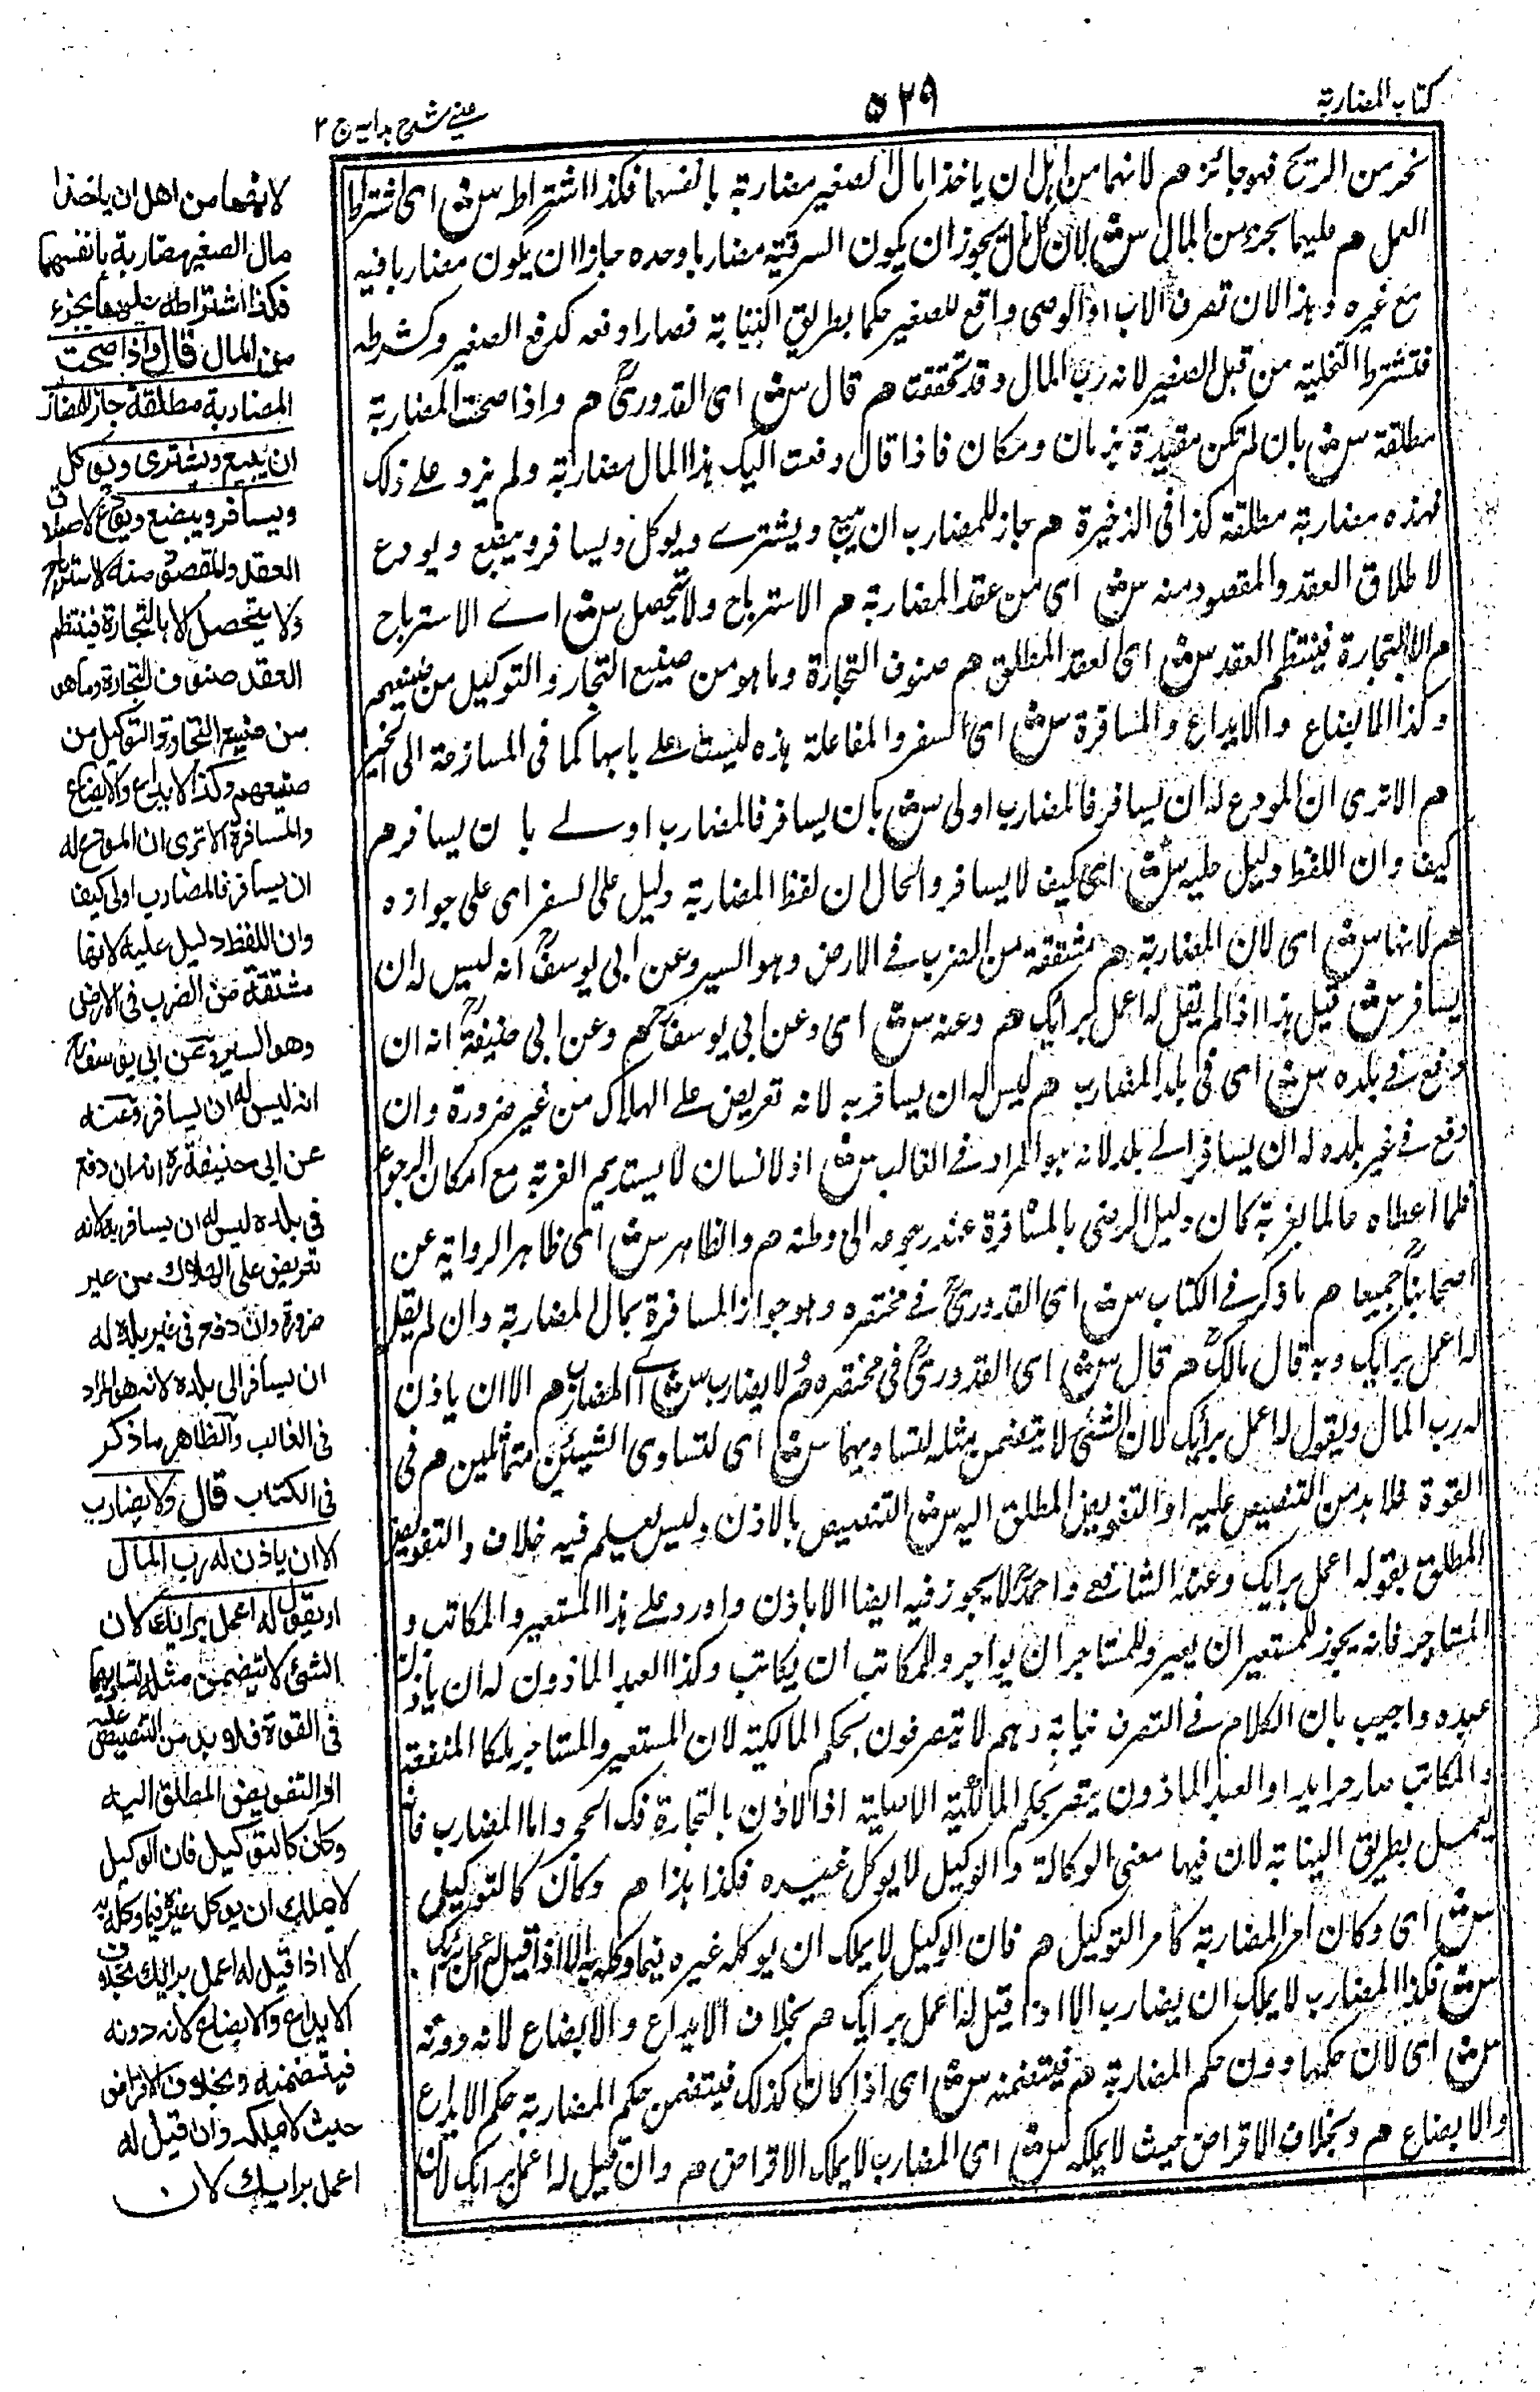 كتاب المضاربة
٥٢٩
عيني شرح هداية ج ٢
من الربح فهو جائز هم لانهما من اهل ان ياخذا مال الصغير مضاربة بانفسهما فكذا اشتراطه ش اى اشتراط
العمل هم عليهما بجزء من المال ش لان كل مال يجوز ان يكون مضاربا وحده جاز ان يكون مضاربا فيه
مع غيره وهذا لان تصرف الاب او الوصى واقع للصغير حكما بطريق النيابة فصار دفعه كدفع الصغير وكشرطه
فتشترط التخلية من قبل الصغير لانه رب المال وقد تحققت هم قال ش اى القدورىؒ هم واذا صحت المضاربة
مطلقة ش بان لم تكن مقيدة بزمان ومكان فاذا قال دفعت اليك هذا المال مضاربة ولم يزد على ذلك
فهذه مضاربة مطلقة كذا فى الذخيرة هم جاز للمضارب ان يبيع ويشترى ويوكل ويسافر ويبضع ويودع
لاطلاق العقد والمقصود منه ش اى من عقد المضاربة هم الاسترباح ولا يتحصل ش اى الاسترباح
هم الا بالتجارة فينتظم العقد ش اى العقد المطلق هم صنوف التجارة وما هو من صنيع التجار والتوكيل من صنيعهم
وكذا الابضاع والايداع والمسافرة ش اى السفر والمفاعلة هذه ليست على بابها كما فى المسارعة الى الخير
هم الا ترى ان المودع له ان يسافر فالمضارب اولى ش بان يسافر فالمضارب اولى بان يسافر هم
كيف وان اللفظ دليل عليه ش اى كيف لا يسافر والحال ان لفظ المضاربة دليل على السفر اى على جوازه
هم لانها ش اى لان المضاربة هم مشتقة من الضرب فى الارض وهو السير وعن ابى يوسفؒ انه ليس له ان
يسافر ش قيل هذا اذا لم يقل له اعمل برايك هم وعنه ش اى وعن ابى يوسفؒ هم وعن ابى حنيفةؒ انه ان
دفع فى بلده ش اى فى بلد المضارب هم ليس له ان يسافر به لانه تعريض على الهلاك من غير ضرورة وان
دفع فى غير بلده له ان يسافر الى بلده لانه هو المراد فى الغالب ش اذ الانسان لا يستديم الغربة مع امكان الرجوع
فلما اعطاه عالما بغربته كان دليل الرضى بالمسافرة عند رجوعه الى وطنه هم والظاهر ش اى ظاهر الرواية عن
اصحابناؒ جميعا هم ما ذكر فى الكتاب ش اى القدورىؒ فى مختصره وهو جواز المسافرة بمال المضاربة وان لم يقل
له اعمل برايك وبه قال مالكؒ هم قال ش اى القدورىؒ فى مختصره هم ولا يضارب ش اى المضارب هم الا ان ياذن
له رب المال او يقول له اعمل برايك لان الشئ لا يتضمن مثله لتساويهما ش اى لتساوى الشيئين متماثلين هم فى
القوة فلا بد من التنصيص عليه او التفويض المطلق اليه ش التنصيص بالاذن وليس يعلم فيه خلاف والتفويض
المطلق بقوله اعمل برايك وعند الشافعى واحمدؒ لا يجوز فيه ايضا الا باذن واورد على هذا المستعير والمكاتب و
المستاجر فانه يجوز للمستعير ان يعير وللمستاجر ان يواجر وللمكاتب ان يكاتب وكذا العبد الماذون له ان ياذن
عبده واجيب بان الكلام فى التصرف نيابة وهم لا يتصرفون بحكم المالكية لان المستعير والمستاجر ملكا المنفعة
والمكاتب صار حرا يدا والعبد الماذون يتصرف بحكم المالكية الاصلية اذ الاذن بالتجارة فك الحجر واما المضارب فانه
يعمل بطريق النيابة لان فيها معنى الوكالة والوكيل لا يوكل غيره فكذا هذا هم وكان كالتوكيل
ش اى وكان امر المضاربة كامر التوكيل هم فان الوكيل لا يملك ان يوكل غيره فيما وكله به الا اذا قيل له اعمل برايك
ش فكذا المضارب لا يملك ان يضارب الا اذا قيل له اعمل برايك هم بخلاف الايداع والابضاع لانه دونه
ش اى لان حكمها دون حكم المضاربة هم فيتضمنه ش اى اذا كان كذلك فيتضمن حكم المضاربة حكم الايداع
والابضاع هم وبخلاف الاقراض حيث لا يملكه ش اى المضارب لا يملك الاقراض هم وان قيل له اعمل برايك لان
لانهما من اهل ان ياخذا
مال الصغير مضاربة بانفسهما
فكذا اشتراطه عليهما بجزء
من المال قال واذا صحت
المضاربة مطلقة جاز للمضارب
ان يبيع ويشترى ويوكل
ويسافر ويبضع ويودع لاطلاق
العقد والمقصود منه الاسترباح
ولا يتحصل الا بالتجارة فينتظم
العقد صنوف التجارة وما هو
من صنيع التجار والتوكيل من
صنيعهم وكذا الايداع والابضاع
والمسافرة الا ترى ان المودع له
ان يسافر فالمضارب اولى كيف
وان اللفظ دليل عليه لانها
مشتقة من الضرب فى الارض
وهو السير وعن ابى يوسفؒ
انه ليس له ان يسافر وعنه
عن ابى حنيفة رح انه ان دفع
فى بلده ليس له ان يسافر به لانه
تعريض على الهلاك من غير
ضرورة وان دفع فى غير بلده له
ان يسافر الى بلده لانه هو المراد
فى الغالب والظاهر ما ذكر
فى الكتاب قال ولا يضارب
الا ان ياذن له رب المال
او يقول له اعمل برايك لان
الشئ لا يتضمن مثله لتساويهما
فى القوة فلا بد من التنصيص عليه
او التفويض المطلق اليه
وكان كالتوكيل فان الوكيل
لا يملك ان يوكل غيره فيما وكله به
الا اذا قيل له اعمل برايك بخلاف
الايداع والابضاع لانه دونه
فيتضمنه وبخلاف الاقراض
حيث لا يملكه وان قيل له
اعمل برايك لان